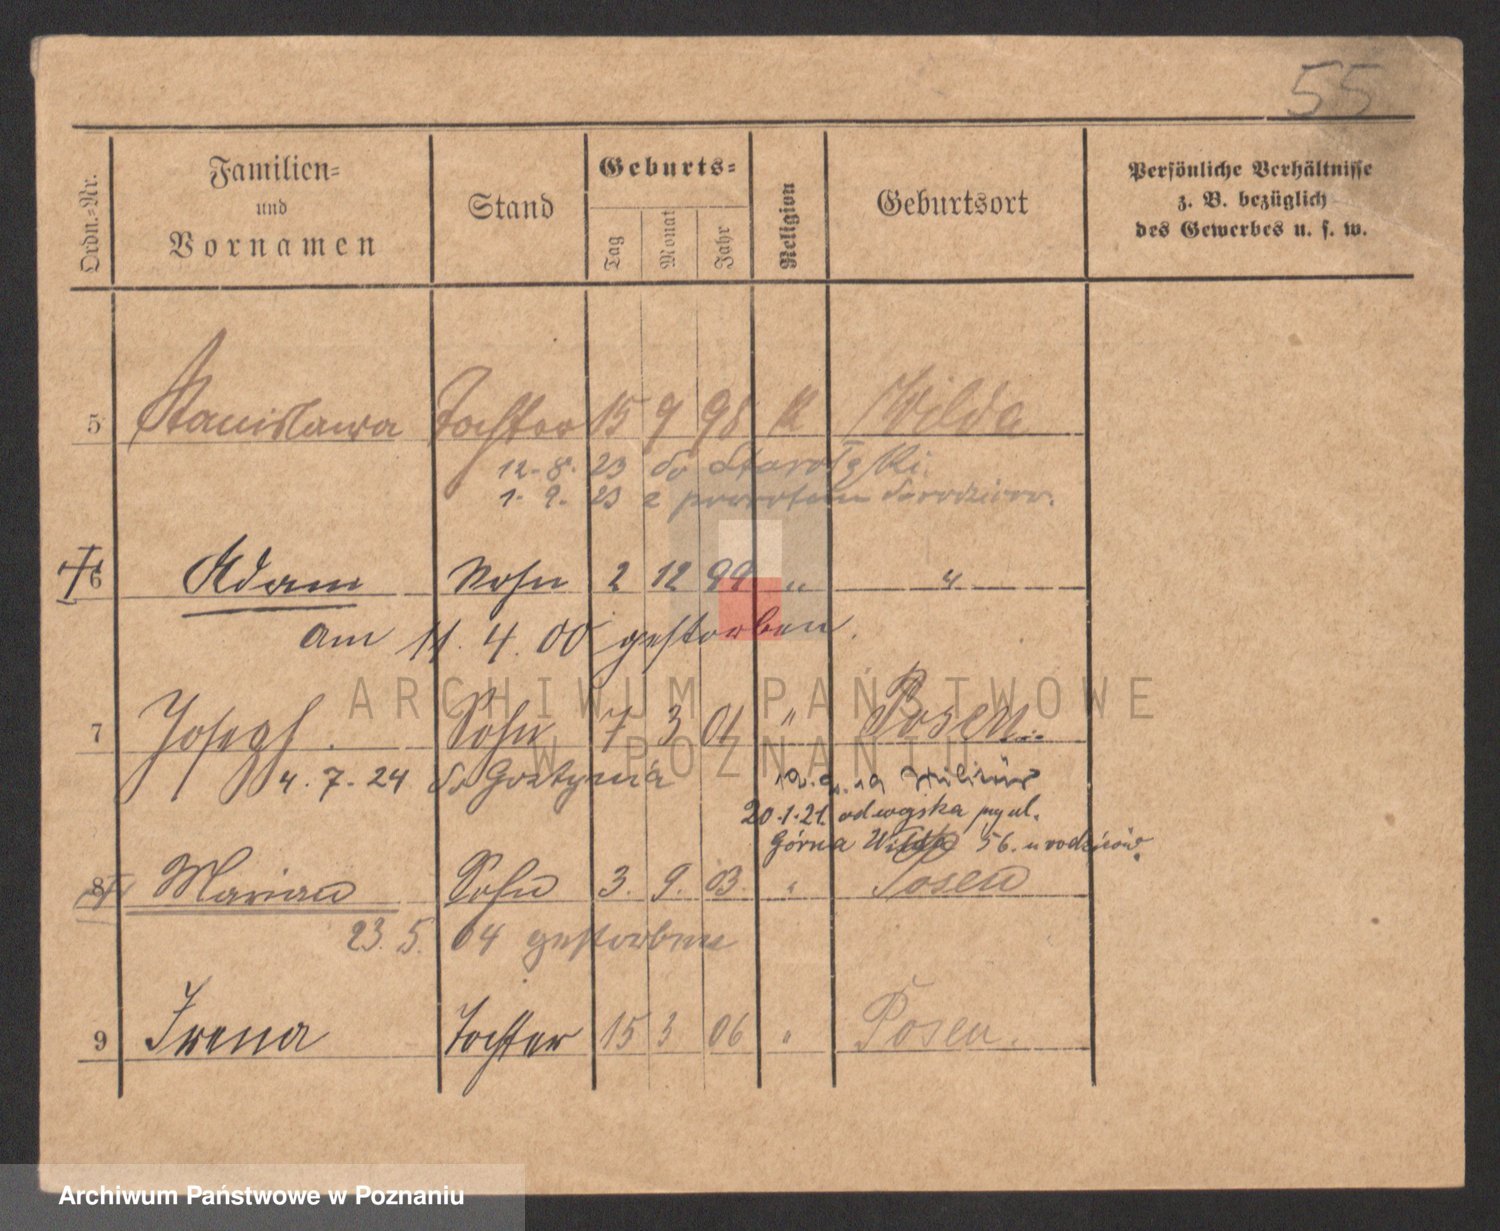 55
Ordn.=Nr.
Familien=
und
Vornamen
Stand
Geburts=
Tag
Monat
Jahr
Religion
Geburtsort
Persönliche Verhältnisse
z. B. bezüglich
des Gewerbes u. s. w.
5 Stanislawa Tochter 15 9 98 K Wilda
12. 8. 23 do Starołęki.
1. 9. 23 z powrotem do rodziców.
6 Adam Sohn 2 12 99 " "
am 11. 4. 00 gestorben.
7 Joseph. Sohn 7 3 01 " Posen
4. 7. 24 do Gostynia
20.1.21. od wojska przy ul.
Górna Wilda 56. u rodziców.
8 Marian Sohn 3. 9. 03. " Posen
23. 5. 04 gestorben
9 Irena Tochter 15 3 06 " Posen.
ARCHIWUM PAŃSTWOWE
W POZNANIU
Archiwum Państwowe w Poznaniu